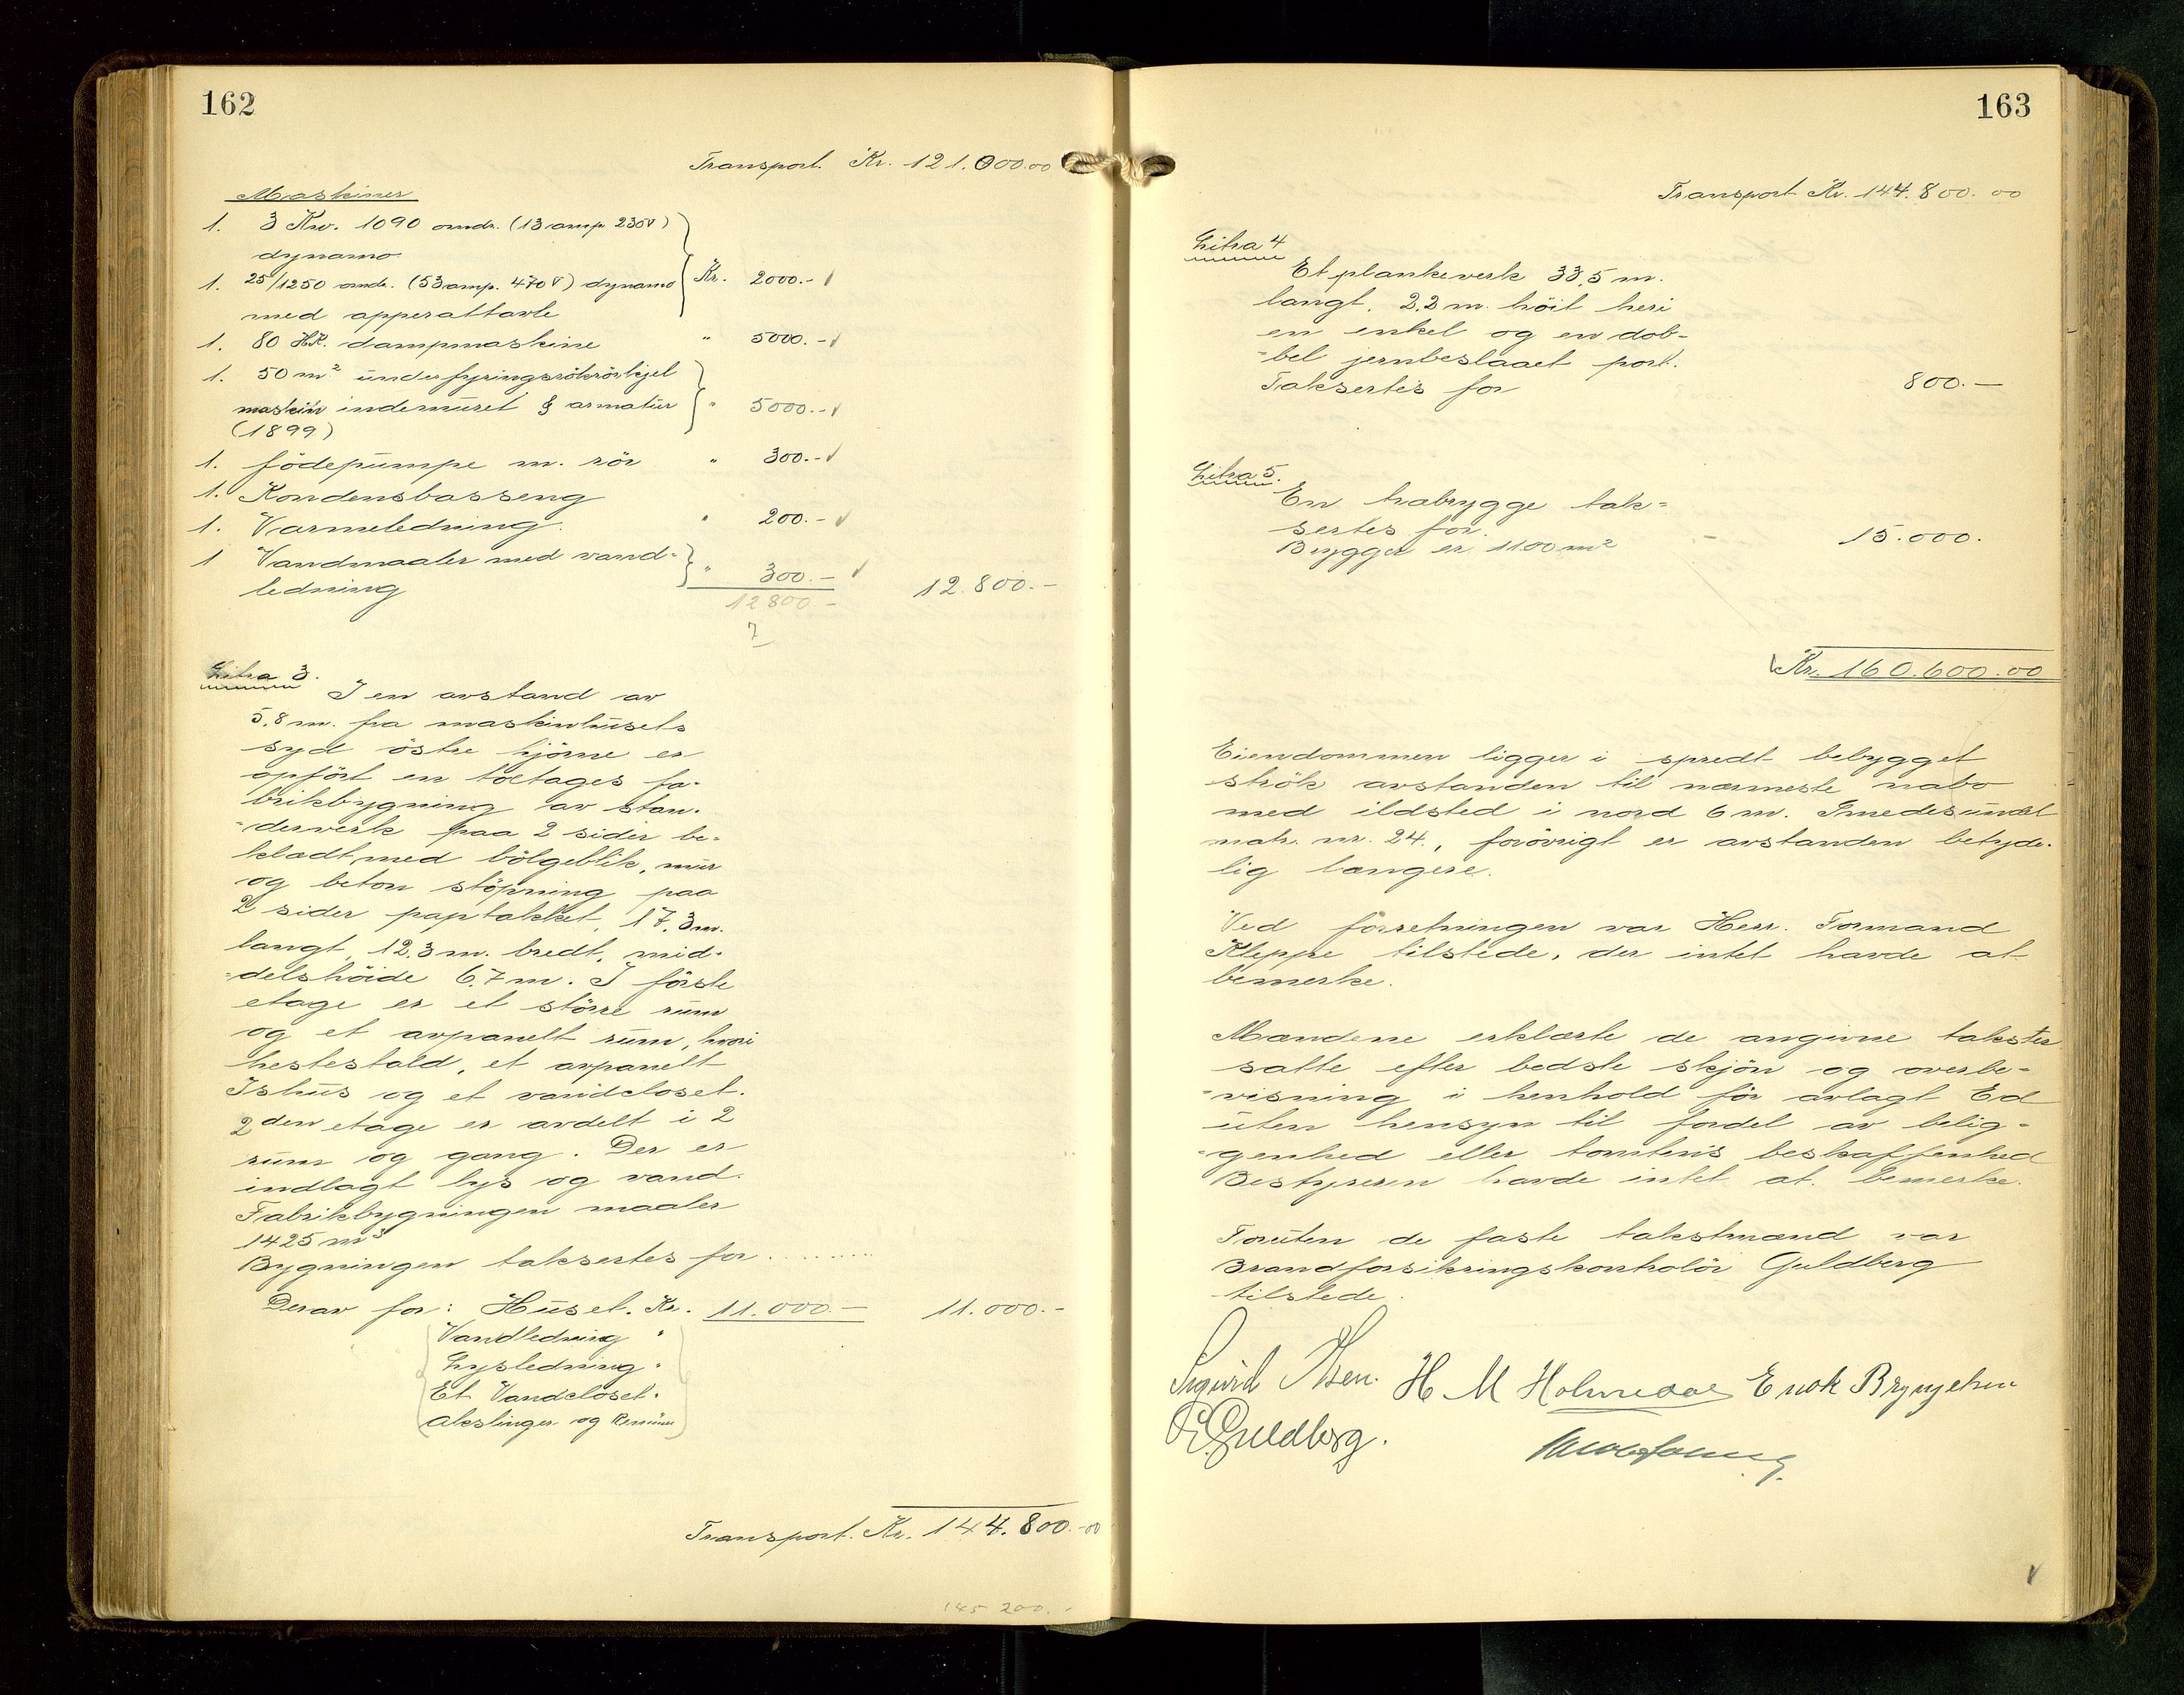 162
Transport. Kr. 121.000.00
Maskiner
1. 3 Kw. 1090 omdr. (13 amp 230V)
dynamo
1. 25/1250 omdr. (53 amp. 470V) dynamo Kr. 2000.-
med apperattavle
1. 80 HK. dampmaskine " 5000.-
1. 50 m² underfyringsrökrörkjel
maskin indemuret & armatur " 5000.-
(1899)
1. födepumpe m. rör " 300.-
1. Kondensbasseng
1. Varmeledning. " 200.-
1 Vandmaaler med vand-
ledning " 300.- 12.800.-
12800-
7
Litra 3.
I en avstand av
5,8 m. fra maskinhusets
syd östre hjörne er
opfört en toetages fa-
brikbygning av stan-
-derverk paa 2 sider be-
kladt med bölgeblik, mur
og beton stöpning paa
2 sider paptakket, 17,3 m.
langt, 12,3 m. bredt, mid-
-delshöide 6,7 m. I förste
etage er et större rum
og et avpanelt rum, hvori
hestestald, et avpanelt
Ishus og et vandcloset.
2den etage er avdelt i 2
rum og gang. Der er
indlagt lys og vand.
Fabrikbygningen maaler
1425 m³
Bygningen taksertes for ..........
Derav for: Huset. Kr. 11.000.- 11.000.-
Vandledning "
Lysledning "
Et Vandcloset.
Akslinger og Remmer
Transport. Kr. 144.800.-00
145 200.
163
Transport Kr. 144.800.00
Litra 4
Et plankeverk 33,5 m.
langt, 2,2 m. höit heri
en enkel og en dob-
-bel jernbeslaaet port.
Taksertes for 800.-
Litra 5.
En trabrygge tak-
sertes for. - 15.000.
Brygger er 1100 m²
Kr. 160.600.00
Eiendommen ligger i spredt bebygget
strök avstanden til nærmeste nabo
med ildsted i nord 6 m. Smedesundet
matr. nr. 24., forövrigt er avstanden betyde-
lig længere.
Ved forretningen var Herr. Formand
Kleppe tilstede, der intet havde at
bemerke.
Mændene erklærte de angivne takster
satte efter bedste skjön og overbe-
-visning i henhold för avlagt Ed
uten hensyn til fordel av belig-
-genhed eller tomtens beskaffenhed
Bestyreren havde intet at bemerke.
Foruten de faste takstmænd var
Brandforsikringskontrolör Guldberg
tilstede.
Sigurd Olsen. H M Holmedal Enok Brynjelsen
E. Guldberg.